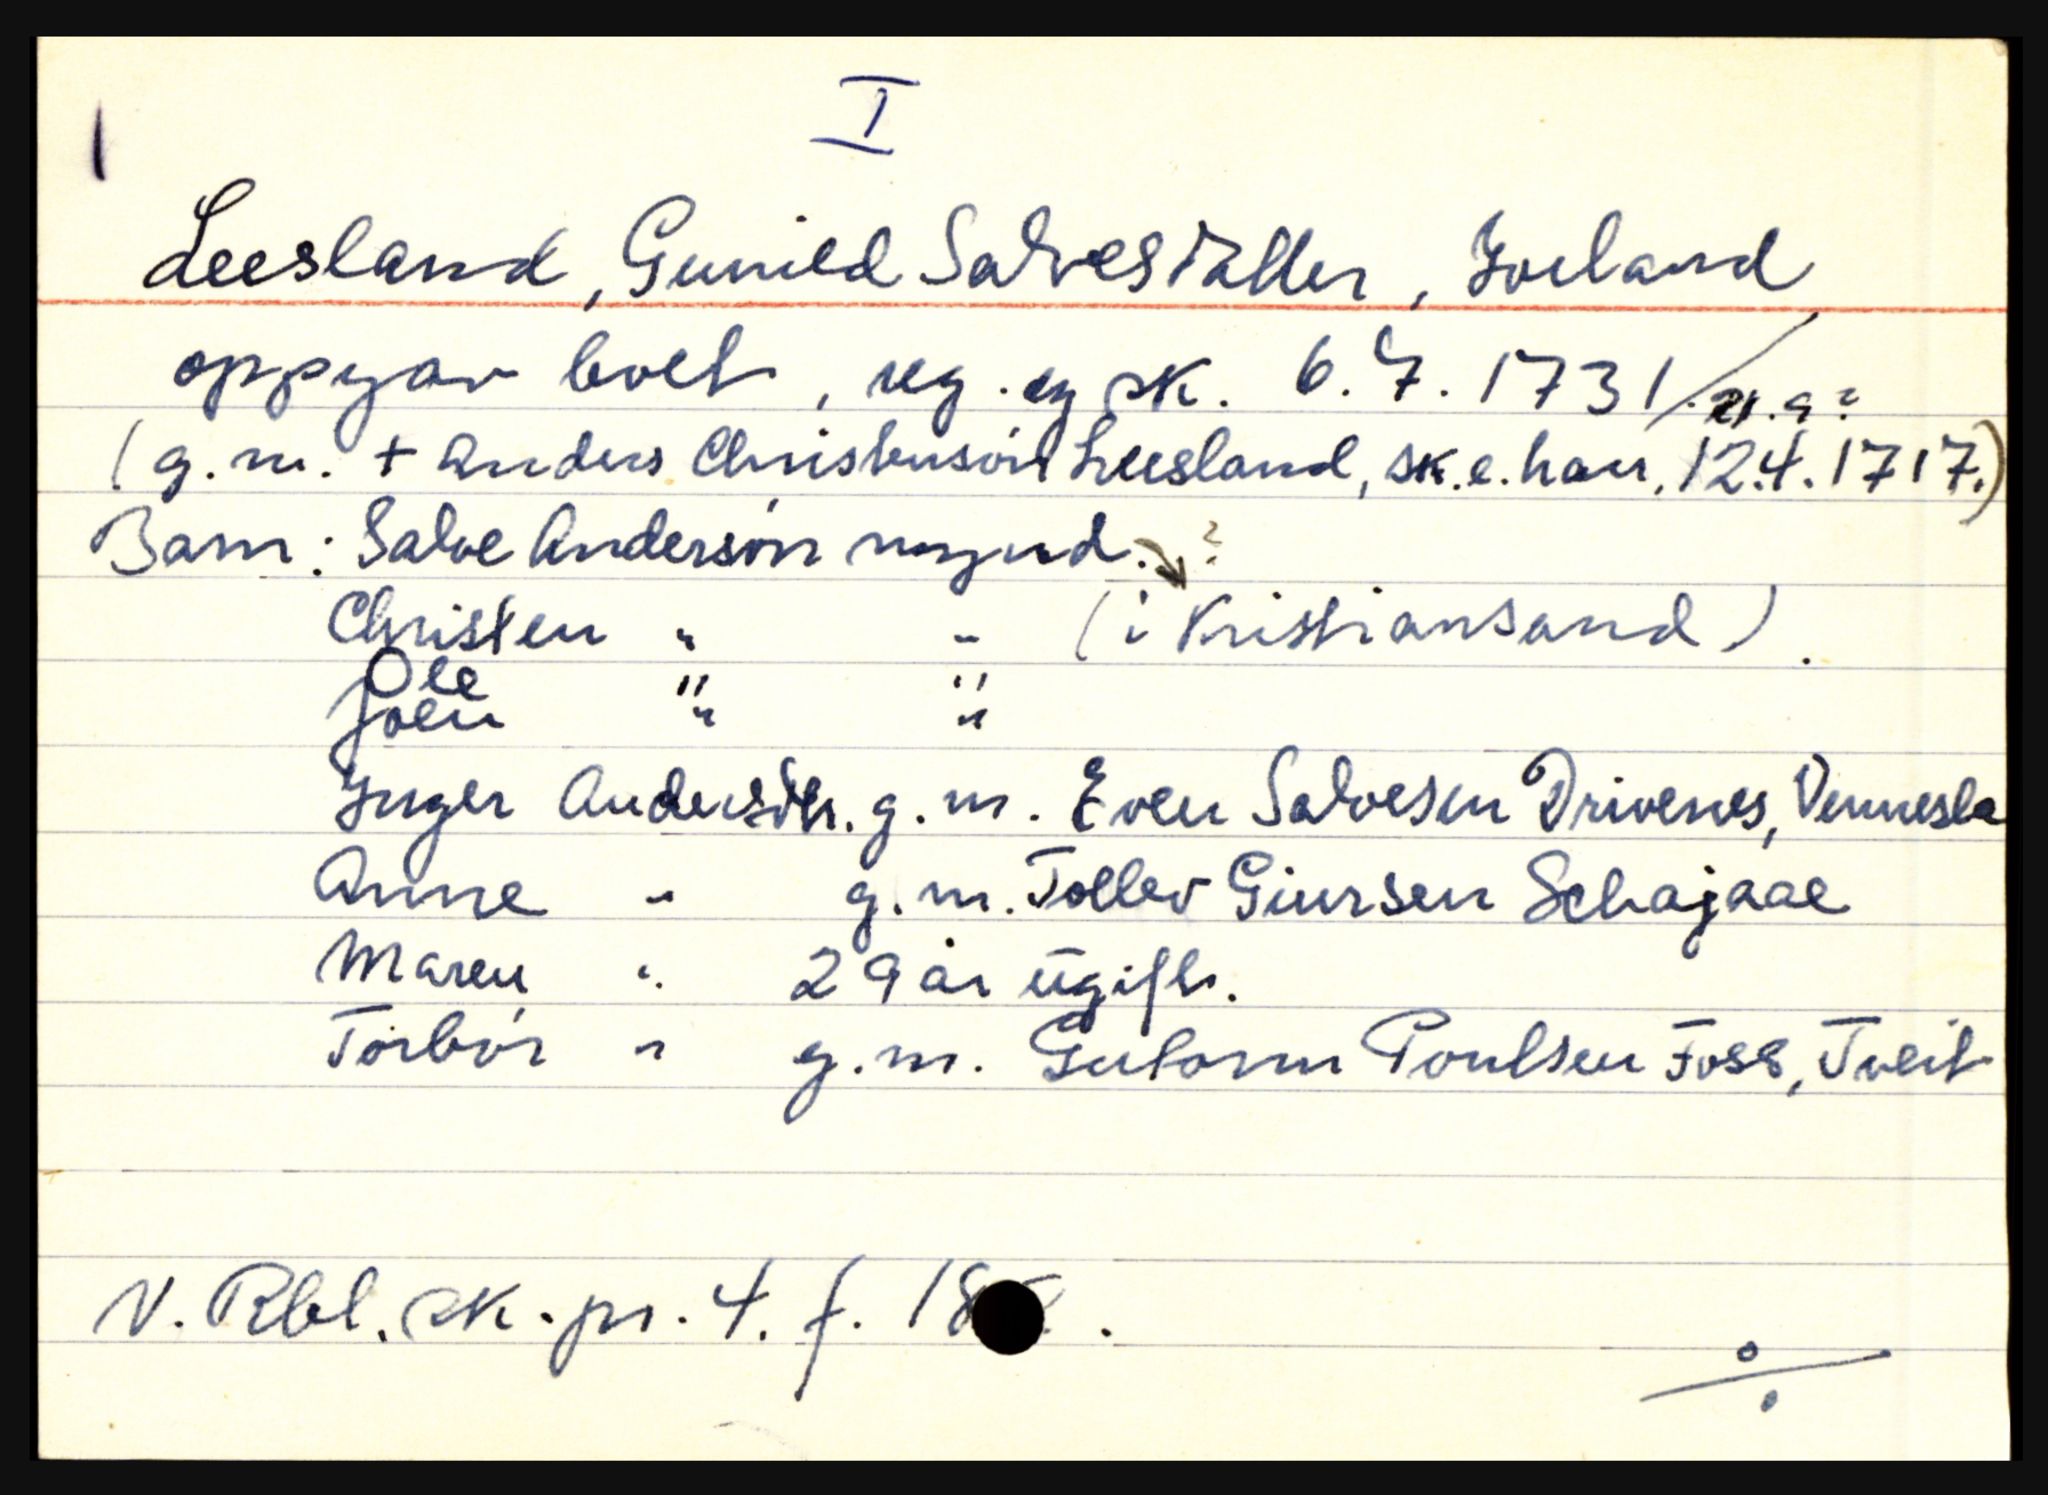 I
Leesland, Gunild Salvesdatter, Iveland
oppgav boet, reg. og sk. 6.7.1731/21.9?
(g.m. + Anders Christensøn Leesland, sk.e. ham, 12.4.1717.)
Barn: Salve Andersøn mynd. ?
Christen " - (i Kristiansand).
Ole " "
Joen " "
Inger Andersdtr. g.m. Even Salvesen Drivenes, Vennesla
Anne " g.m. Tollev Giursen Schajaae
Maren " 29 år ugift.
Torbór " g.m. Gutorm Poulsen Foss, Tveit
N. Rbl. sk. pr. 4. f. 18